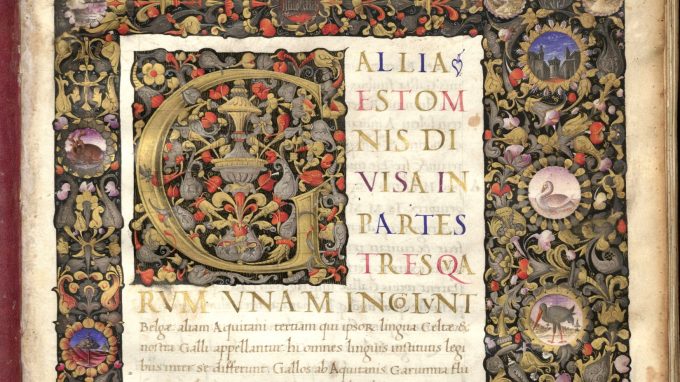 GALLIA
ESTOM
NIS DI
VISA IN
PARTES
TRESQVA
RVM·VNAM INCOLVNT
Belgæ aliam Aquitani tertiam qui ipsoꝝ lingua Celtæ
nostra Galli appellantur hi omnes linguis institutis legi
bus inter se differunt. Gallos ab Aquitanis Garumna flu